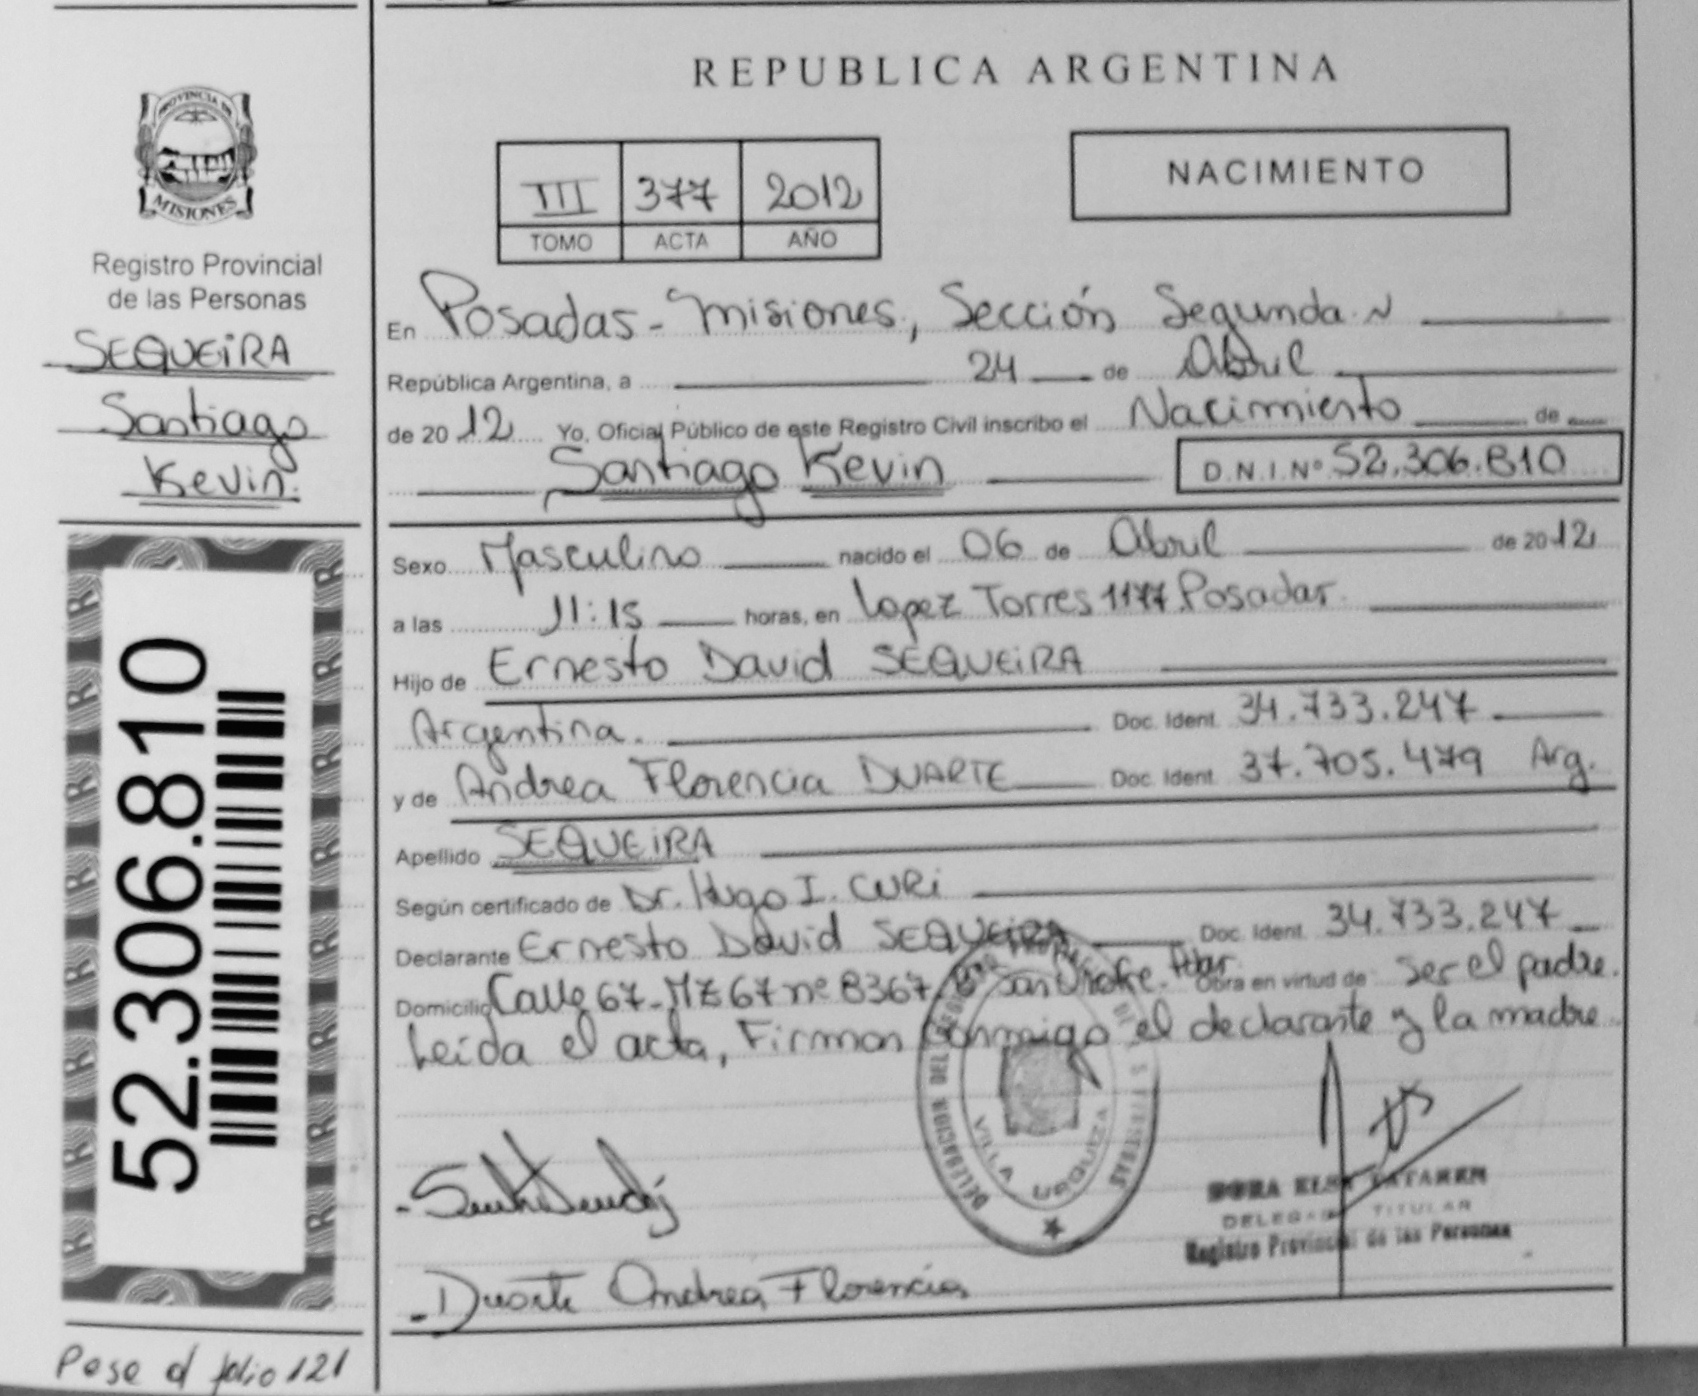 PROVINCIA DE
MISIONES
Registro Provincial
de las Personas
SEQUEIRA
Santiago
Kevin.
52.306.810
Pase al folio 121
REPUBLICA ARGENTINA
III 377 2012
TOMO ACTA AÑO
NACIMIENTO
En Posadas - Misiones, Sección Segunda
República Argentina, a 24 de Abril
de 2012 Yo, Oficial Público de este Registro Civil inscribo el Nacimiento de
Santiago Kevin D.N.I. Nº 52.306.810
Sexo Masculino nacido el 06 de Abril de 2012
a las 11:15 horas, en Lopez Torres 1177 Posadas.
Hijo de Ernesto David SEQUEIRA
Argentina. Doc. Ident. 34.733.247
y de Andrea Florencia DUARTE Doc. Ident. 37.705.479 Arg.
Apellido SEQUEIRA
Según certificado de Dr. Hugo I. CURI
Declarante Ernesto David SEQUEIRA Doc. Ident. 34.733.247
Domicilio Calle 67 - MZ 67 nº 8367 Bº San Onofre. Pdas. Obra en virtud de ser el padre.
Leída el acta, Firman conmigo el declarante y la madre
DELEGACION DEL REGISTRO PROVINCIAL DE LAS PERSONAS
VILLA URQUIZA
DELEGADA TITULAR
Registro Provincial de las Personas
- Duarte Andrea Florencia